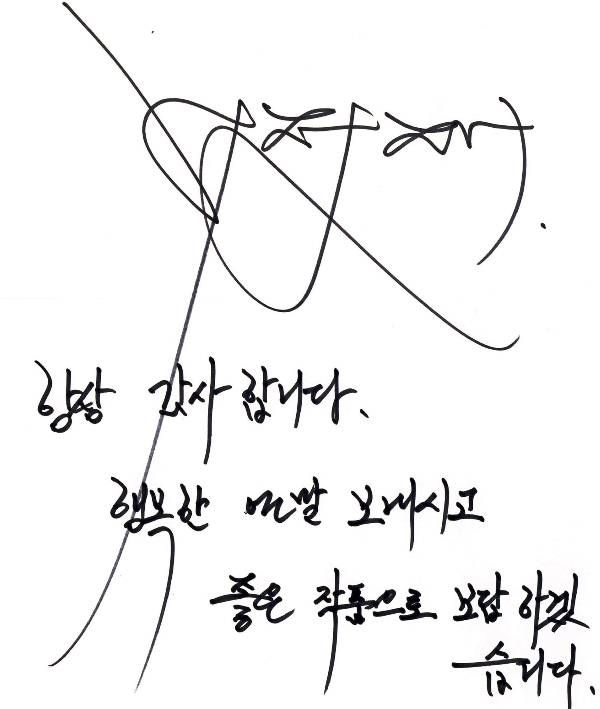 항상 감사 합니다.
행복한 연말 보내시고
좋은 작품으로 보답 하겠
습니다.